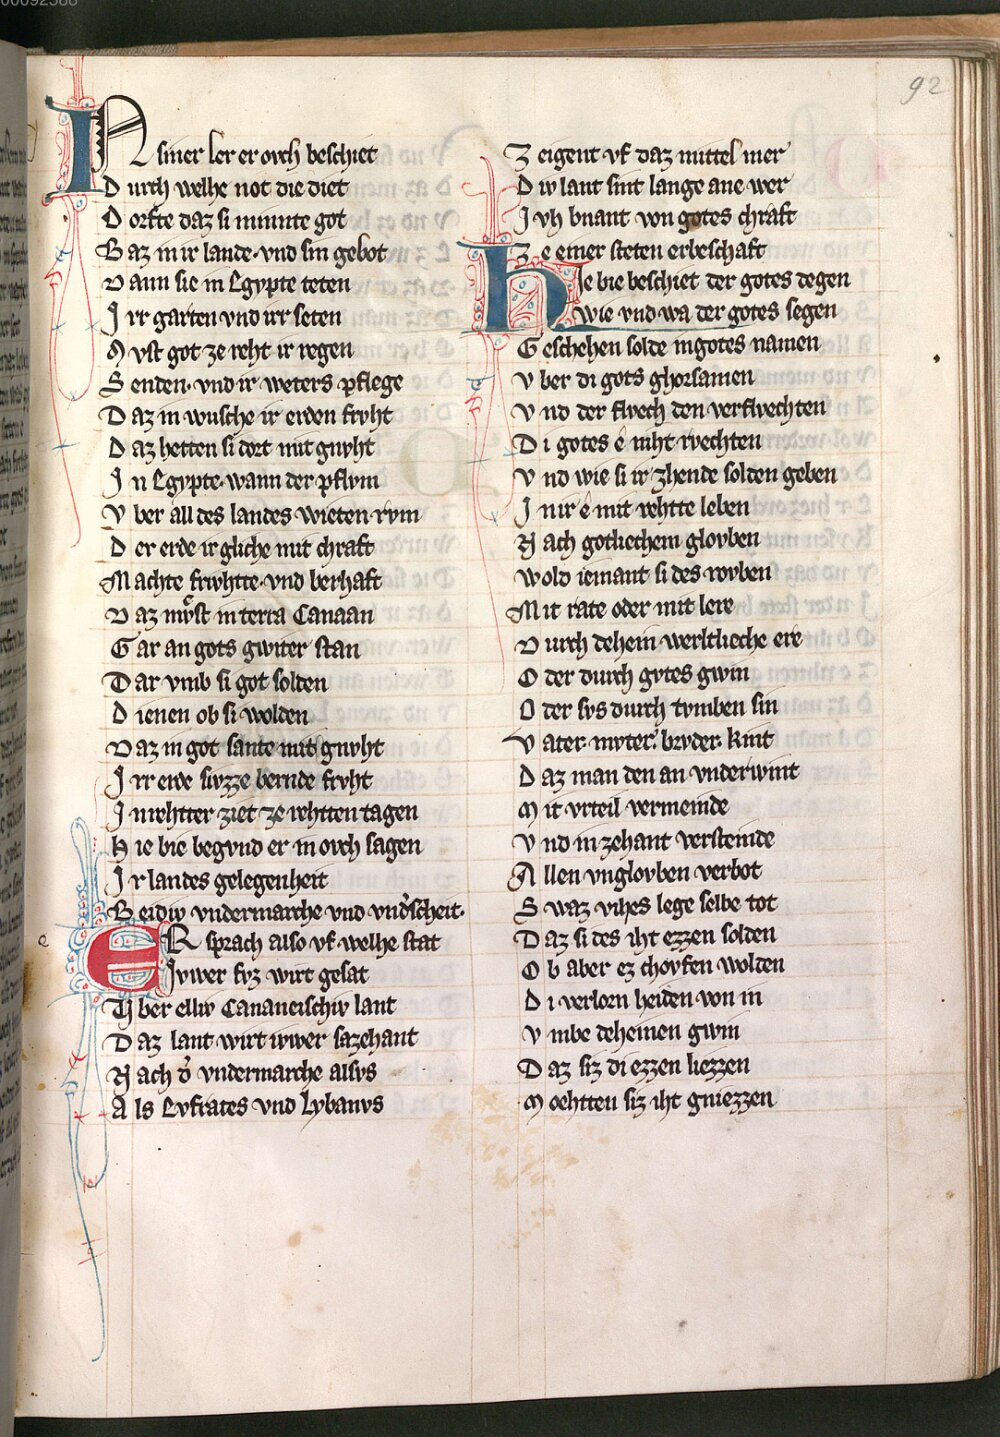 92
IN siner ler er ovch beschiet
Durch welhe not die diet
Dorfte daz si minnte got
Baz in ir lande· vnd sin gebot
Dann sie in Egypte teten
Irr garten vnd irr seten
Mvst got ze reht ir regen
Senden· vnd ir weters pflege
Daz in wusche ir erden frvht
Daz hetten si dort mit gnvht
In Egypte· wann der pflvm
Vber all des landes wieten rvm
Der erde irgliche mit chraft
Machte frwhtte· vnd berhaft
Daz mvst in terra Canaan
Gar an gots gwiter stan
Dar vmb si got solden
Dienen ob si wolden
Daz in got sante mit gnvht
Irr erde svzze bernde frvht
In rehtter ziet ze rehtten tagen
Hie bie begvnd er in ovch sagen
Ir landes gelegenheit
Beidiv vndermarche vnd vnd'scheit·
e
ER sprach also vf welhe stat
Ivwer fvz wirt gesat
Vber elliv Cananeischiv lant
Daz lant wirt ivwer sazehant
Nach d' vndermarche alsvs
Als Evfrates vnd Lybanvs
Zeigent vf daz mittel mer
Div lant sint lange ane wer
Ivh bnant von gotes chraft
Ze einer steten erbeschaft
Hie bie beschiet der gotes degen
wie vnd wa der gotes segen
Geschehen solde in gotes namen
Vber di gots ghorsamen
Vnd der flvech den verflvechten
Di gotes ê niht rvechten
Vnd wie si ir zhende solden geben
In ir ê mit rehtte leben
Nach gotliechem glovben
Wold iemant si des rovben
Mit rate oder mit lere
Durch dehein werltlieche ere
Oder durch gvtes gwin
Oder svs durch tvmben sin
Vater· mvter· brvder· kint
Daz man den an vnderwint
Mit vrteil vermeinde
Vnd in zehant versteinde
Allen vnglovben verbot
Swaz vihes lege selbe tot
Daz si des iht ezzen solden
Ob aber ez chovfen wolden
Di verlorn heiden von in
Vmbe deheinen gwin
Daz siz di ezzen liezzen
Moehtten siz iht gniezzen